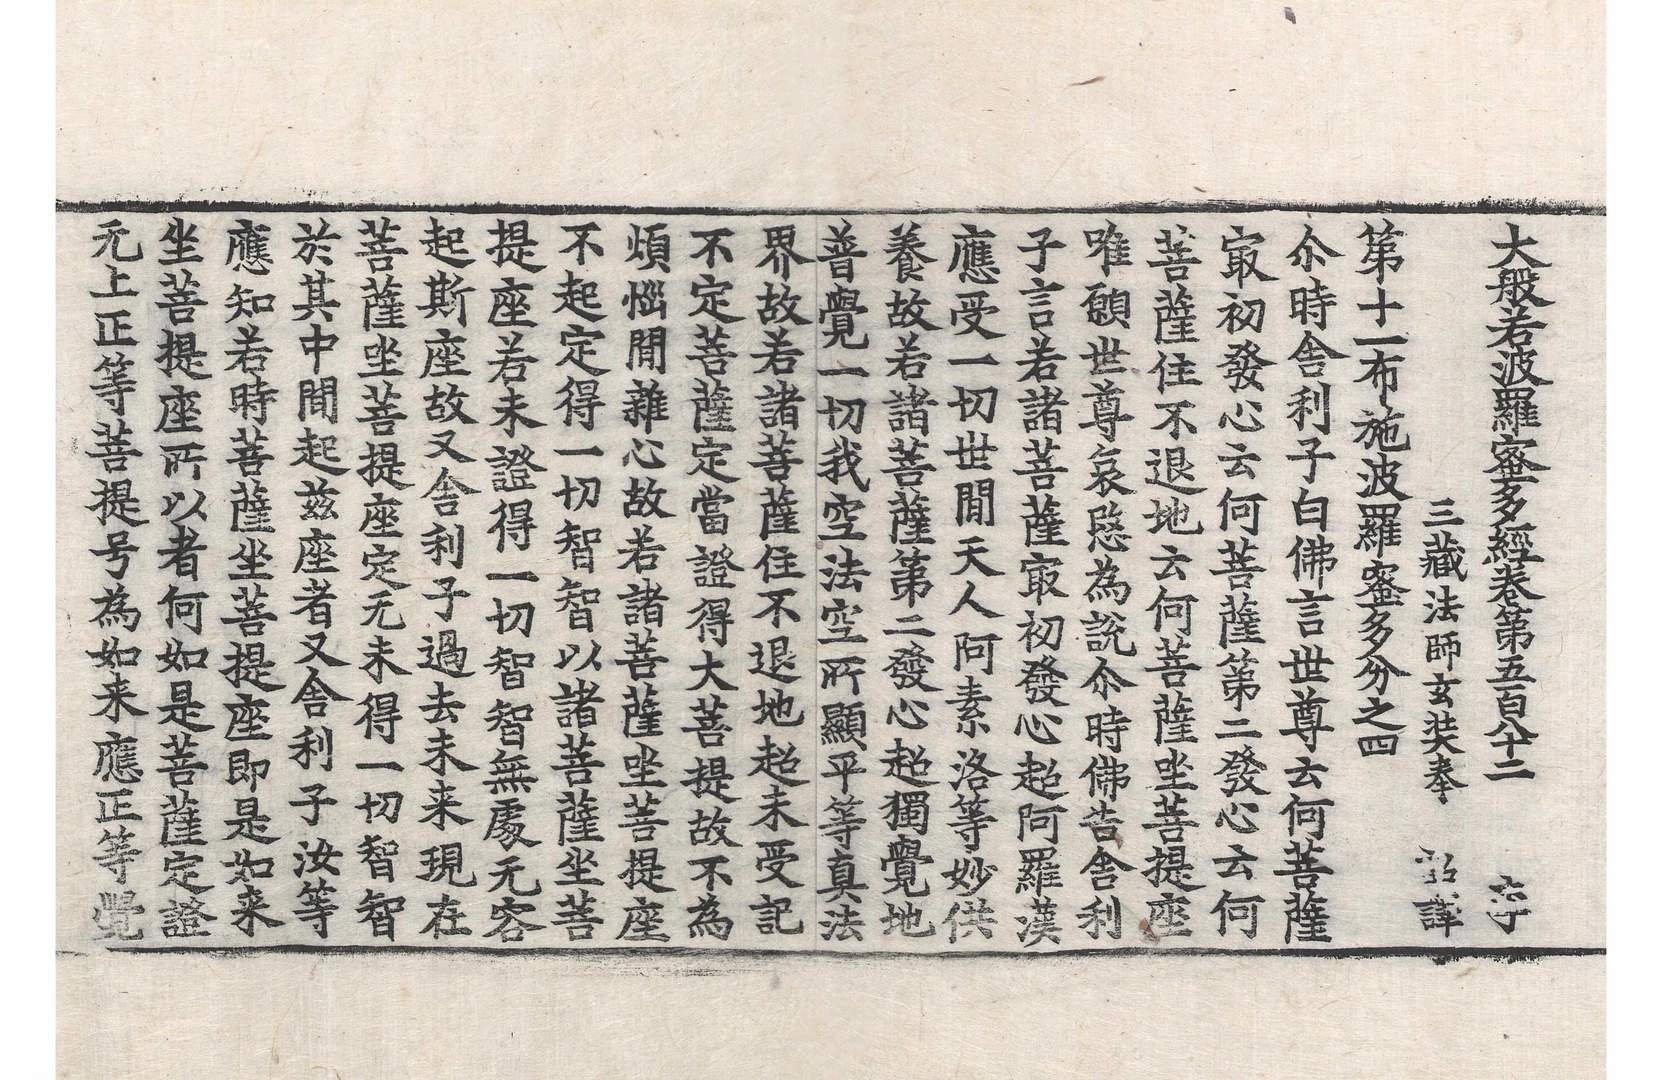 大般若波羅蜜多經卷第五百八十二
三藏法師玄奘奉　詔譯
第十一布施波羅蜜多分之四
尒時舍利子白佛言世尊云何菩薩
㝡初發心云何菩薩第二發心云何
菩薩住不退地云何菩薩坐菩提座
唯願世尊哀愍為說尒時佛告舍利
子言若諸菩薩㝡初發心超阿羅漢
應受一切世閒天人阿素洛等妙供
養故若諸菩薩第二發心超獨覺地
普覺一切我空法空所顯平等真法
界故若諸菩薩住不退地超未受記
不定菩薩定當證得大菩提故不為
煩惱閒雜心故若諸菩薩坐菩提座
不起定得一切智智以諸菩薩坐菩
提座若未證得一切智智無處无容
起斯座故又舍利子過去未来現在
菩薩坐菩提座定无未得一切智智
於其中閒起茲座者又舍利子汝等
應知若時菩薩坐菩提座即是如来
坐菩提座所以者何如是菩薩定證
无上正等菩提号為如来應正等覺